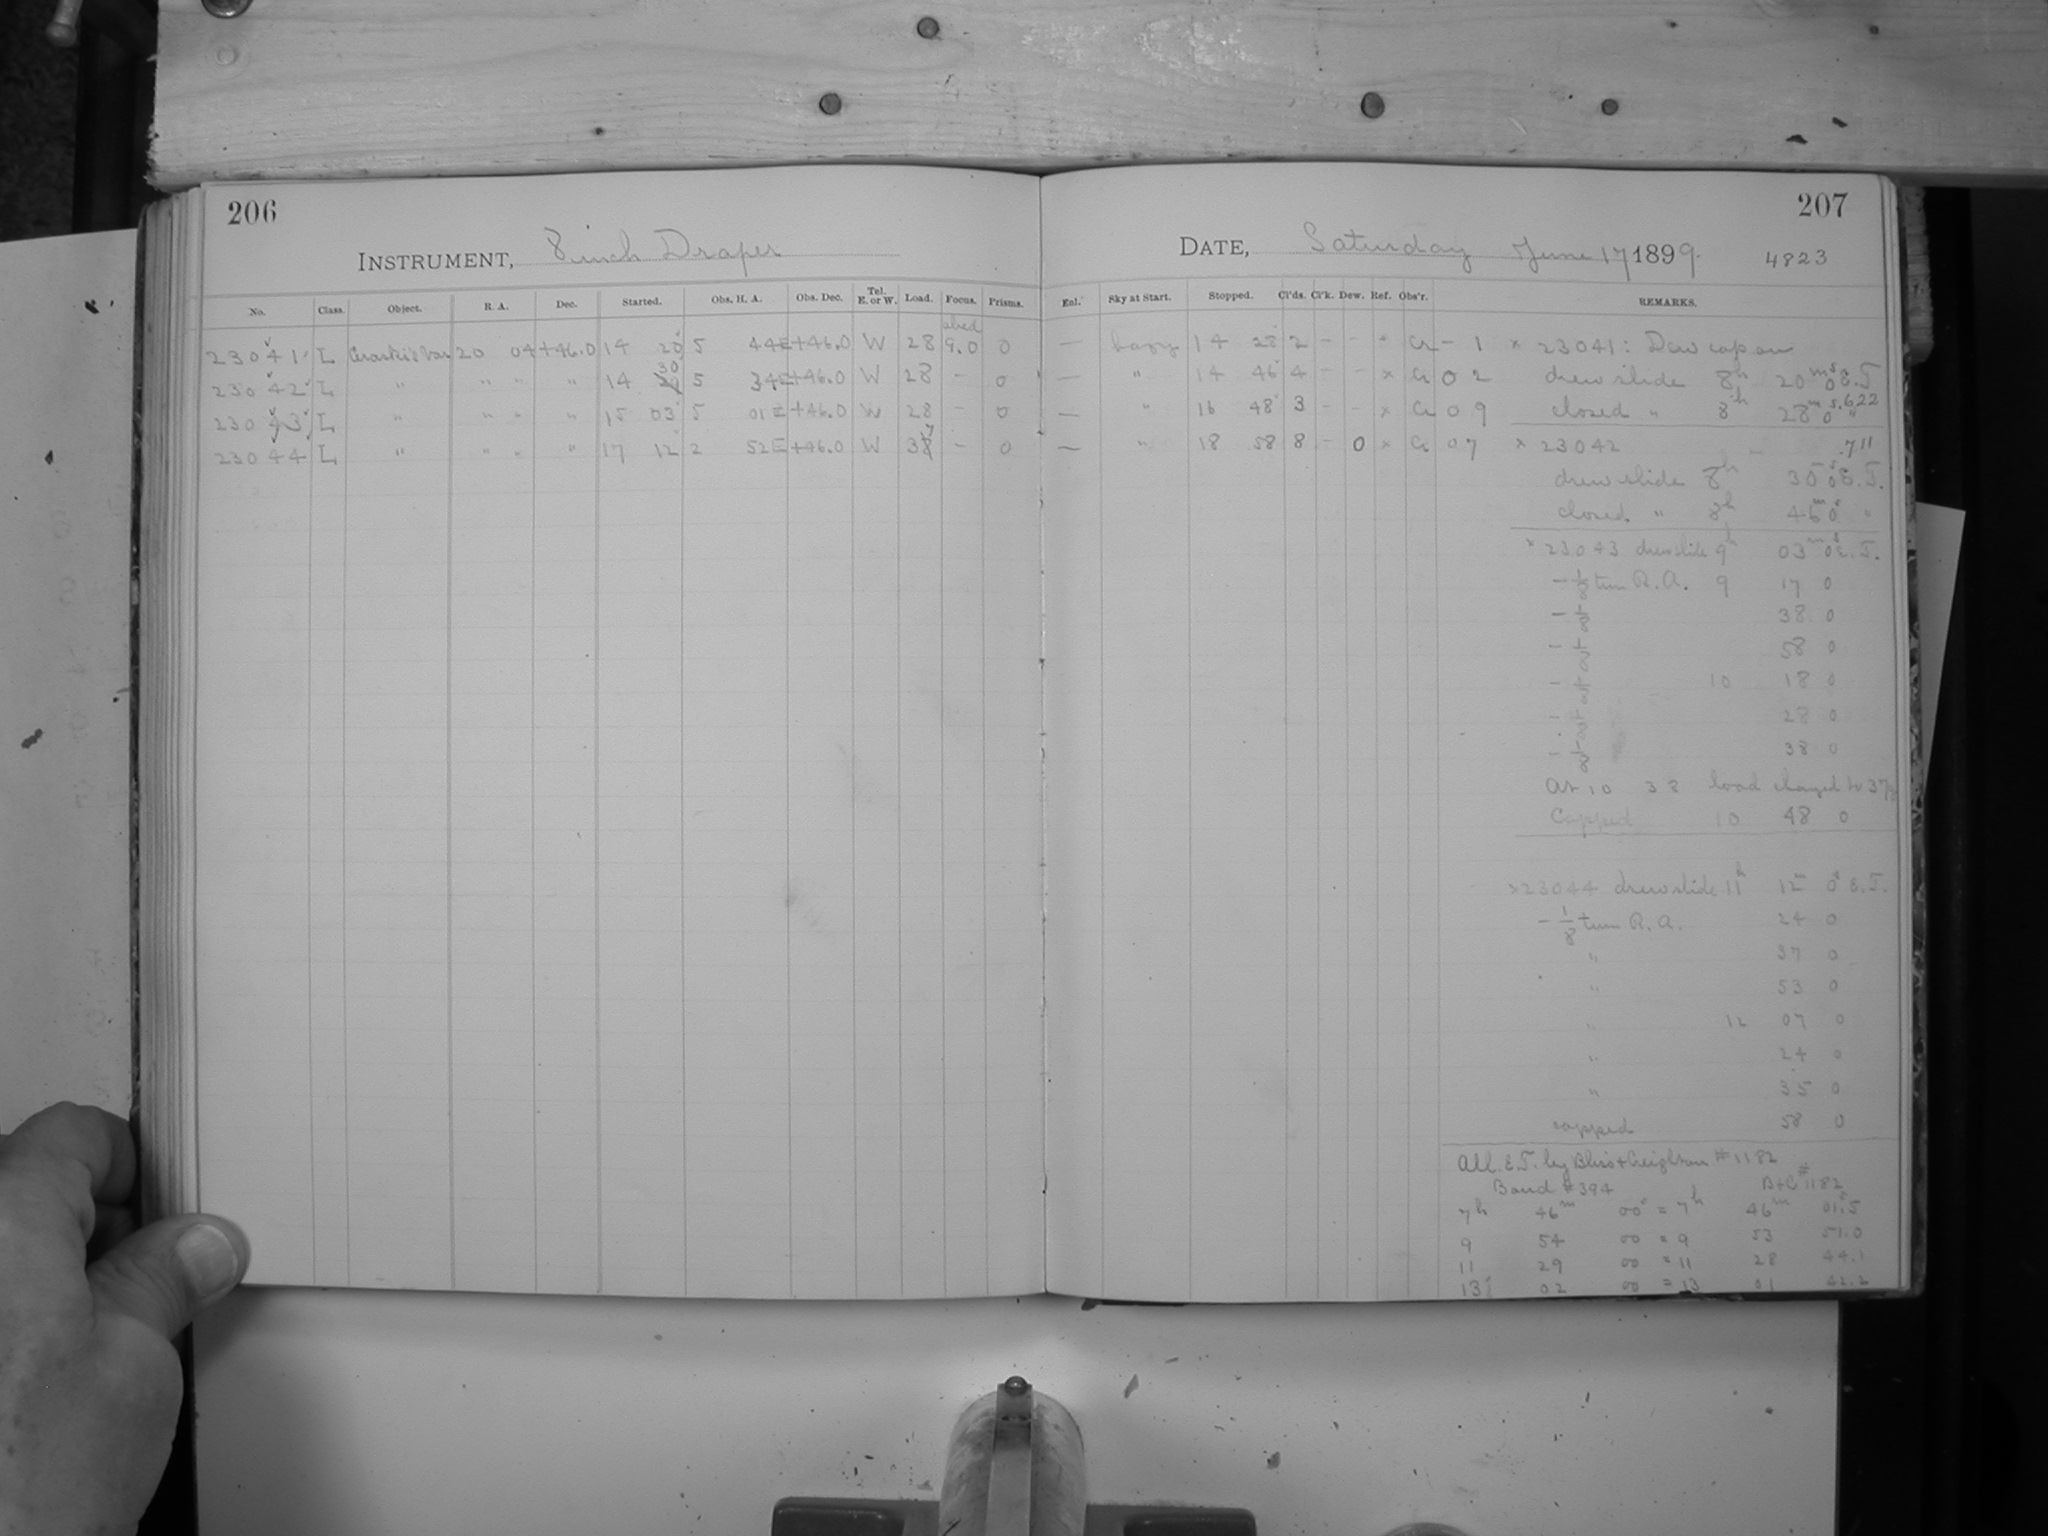 206
INSTRUMENT, 8 inch Draper
No. Class. Object. R. A. Dec. Started. Obs. H. A. Obs. Dec. Tel. E. or W. Load. Focus. Prisms.
23041 L Ceraski's Var 20 04 +46.0 14 20 5 44E +46.0 W 28 9.0 0
23042 L " " " " 14 30 5 34E +46.0 W 28 – 0
23043 L " " " " 15 03 5 01E +46.0 W 28 – 0
23044 L " " " " 17 12 2 52E +46.0 W 37 – 0
207
DATE, Saturday June 17 1899. 4823
Enl. Sky at Start. Stopped. Cl'ds. Cl'k. Dew. Ref. Obs'r. REMARKS.
— hazy 14 28 2 – – × Cr – 1
— " 14 46 4 – – × Cr 0 2
— " 16 48 3 – – × Cr 0 9
— " 18 58 8 – 0 × Cr 0 7
× 23041: Dew cap on
drew slide 8h 20m 0s E.T.
closed " 8h 28m 0s "
.622
× 23042 .711
drew slide 8h 30m 0s E.T.
closed " 8h 46m 0s "
× 23043 drew slide 9h 03m 0s E.T.
– 1/8 turn R.A. 9 17 0
– 38 0
– 58 0
– 10 18 0
– 28 0
– 38 0
At 10 38 load changed to 37
Capped 10 48 0
× 23044 drew slide 11h 12m 0s E.T.
– 1/8 turn R.A. 24 0
" 37 0
" 53 0
" 12 07 0
" 24 0
" 35 0
capped 58 0
All E.T. by Bliss + Creighton #1182
Bond #394 B+C #1182
7h 46m 00s = 7h 46m 01s.5
9 54 00 = 9 53 51.0
11 29 00 = 11 28 44.1
13 02 00 = 13 01 42.2